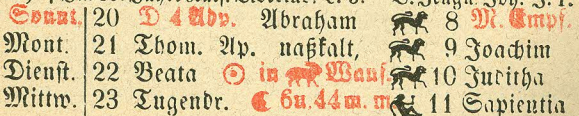 Sonnt. 20 D 4 Adv. Abraham 8 M. Empf.
Mont. 21 Thom. Ap. naßkalt, 9 Joachim
Dienst. 22 Beata ☉ in Wans. 10 Juditha
Mittw. 23 Tugendr. ☾ 6u. 44m. m. 11 Sapientia